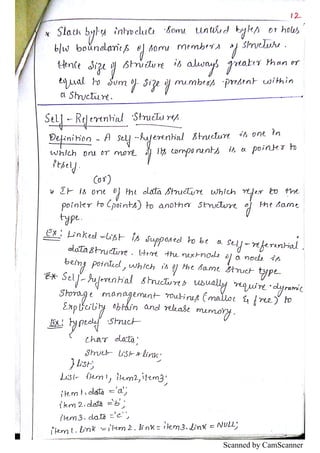 12
* Slack bytes introduce some unused bytes or holes
b/w boundaries of some members of structure.
Hence size of structure is always greater than or
equal to sum of size of members present within
a structure.
Self-Referential Structures
Definition - A self-referential structure is one in
which one or more of its components is a pointer to
itself.
(or)
* It is one of the data structure which refer to the
pointer to (points) to another structure of the same
type.
Ex: Linked-list is supposed to be a self-referential
data structure. Here the next node of a node is
being pointed, which is of the same struct type.
Self-referential structures usually require dynamic
storage management routines (malloc & free) to
explicitly obtain and release memory.
Ex: typedef struct
{ char data;
struct list * link;
} list;
List item1, item2, item3;
item1.data = 'a';
item2.data = 'b';
item3.data = 'c';
item1.link = item2.link = item3.link = NULL;
Scanned by CamScanner